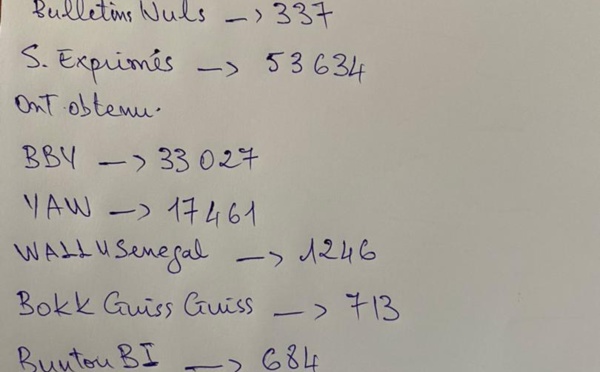 Bulletins Nuls -> 337
S. Exprimés -> 53 634
Ont obtenu.
BBY -> 33 027
YAW -> 17 461
WALLU Senegal -> 1246
Bokk Guiss Guiss -> 713
Buntou BI -> 684